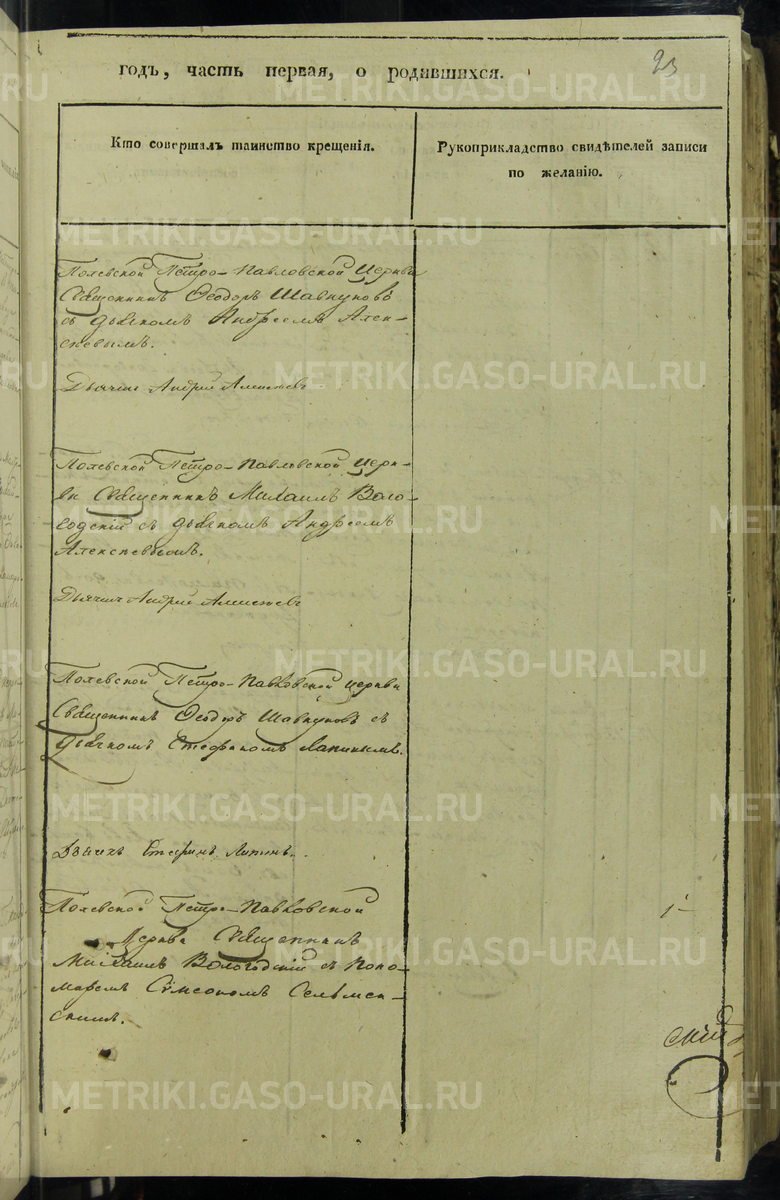 23
годъ, часть первая, о родившихся.
Кто совершалъ таинство крещенія.
Рукоприкладство свидѣтелей записи
по желанію.
Полевской Петро-Павловской Церкви
Священникъ Ѳеодоръ Шавкуновъ
съ дьячкомъ Андреемъ Алек-
сѣевымъ.
Дьячекъ Андрей Алексѣевъ
Полевской Петро-Павловской Церк-
ви Священникъ Михаилъ Воло-
годскій съ дьячкомъ Андреемъ
Алексѣевымъ.
Дьячекъ Андрей Алексѣевъ
Полевской Петро-Павловской церкви
Священникъ Ѳеодоръ Шавкуновъ съ
дьячкомъ Стефаномъ Лапинымъ.
Дьячекъ Стефанъ Лапинъ.
Полевской Петро-Павловской
Церкви Священникъ
Михаилъ Вологодскій съ Поно-
маремъ Сѵмеономъ Сельмен-
скимъ.
METRIKI.GASO-URAL.RU